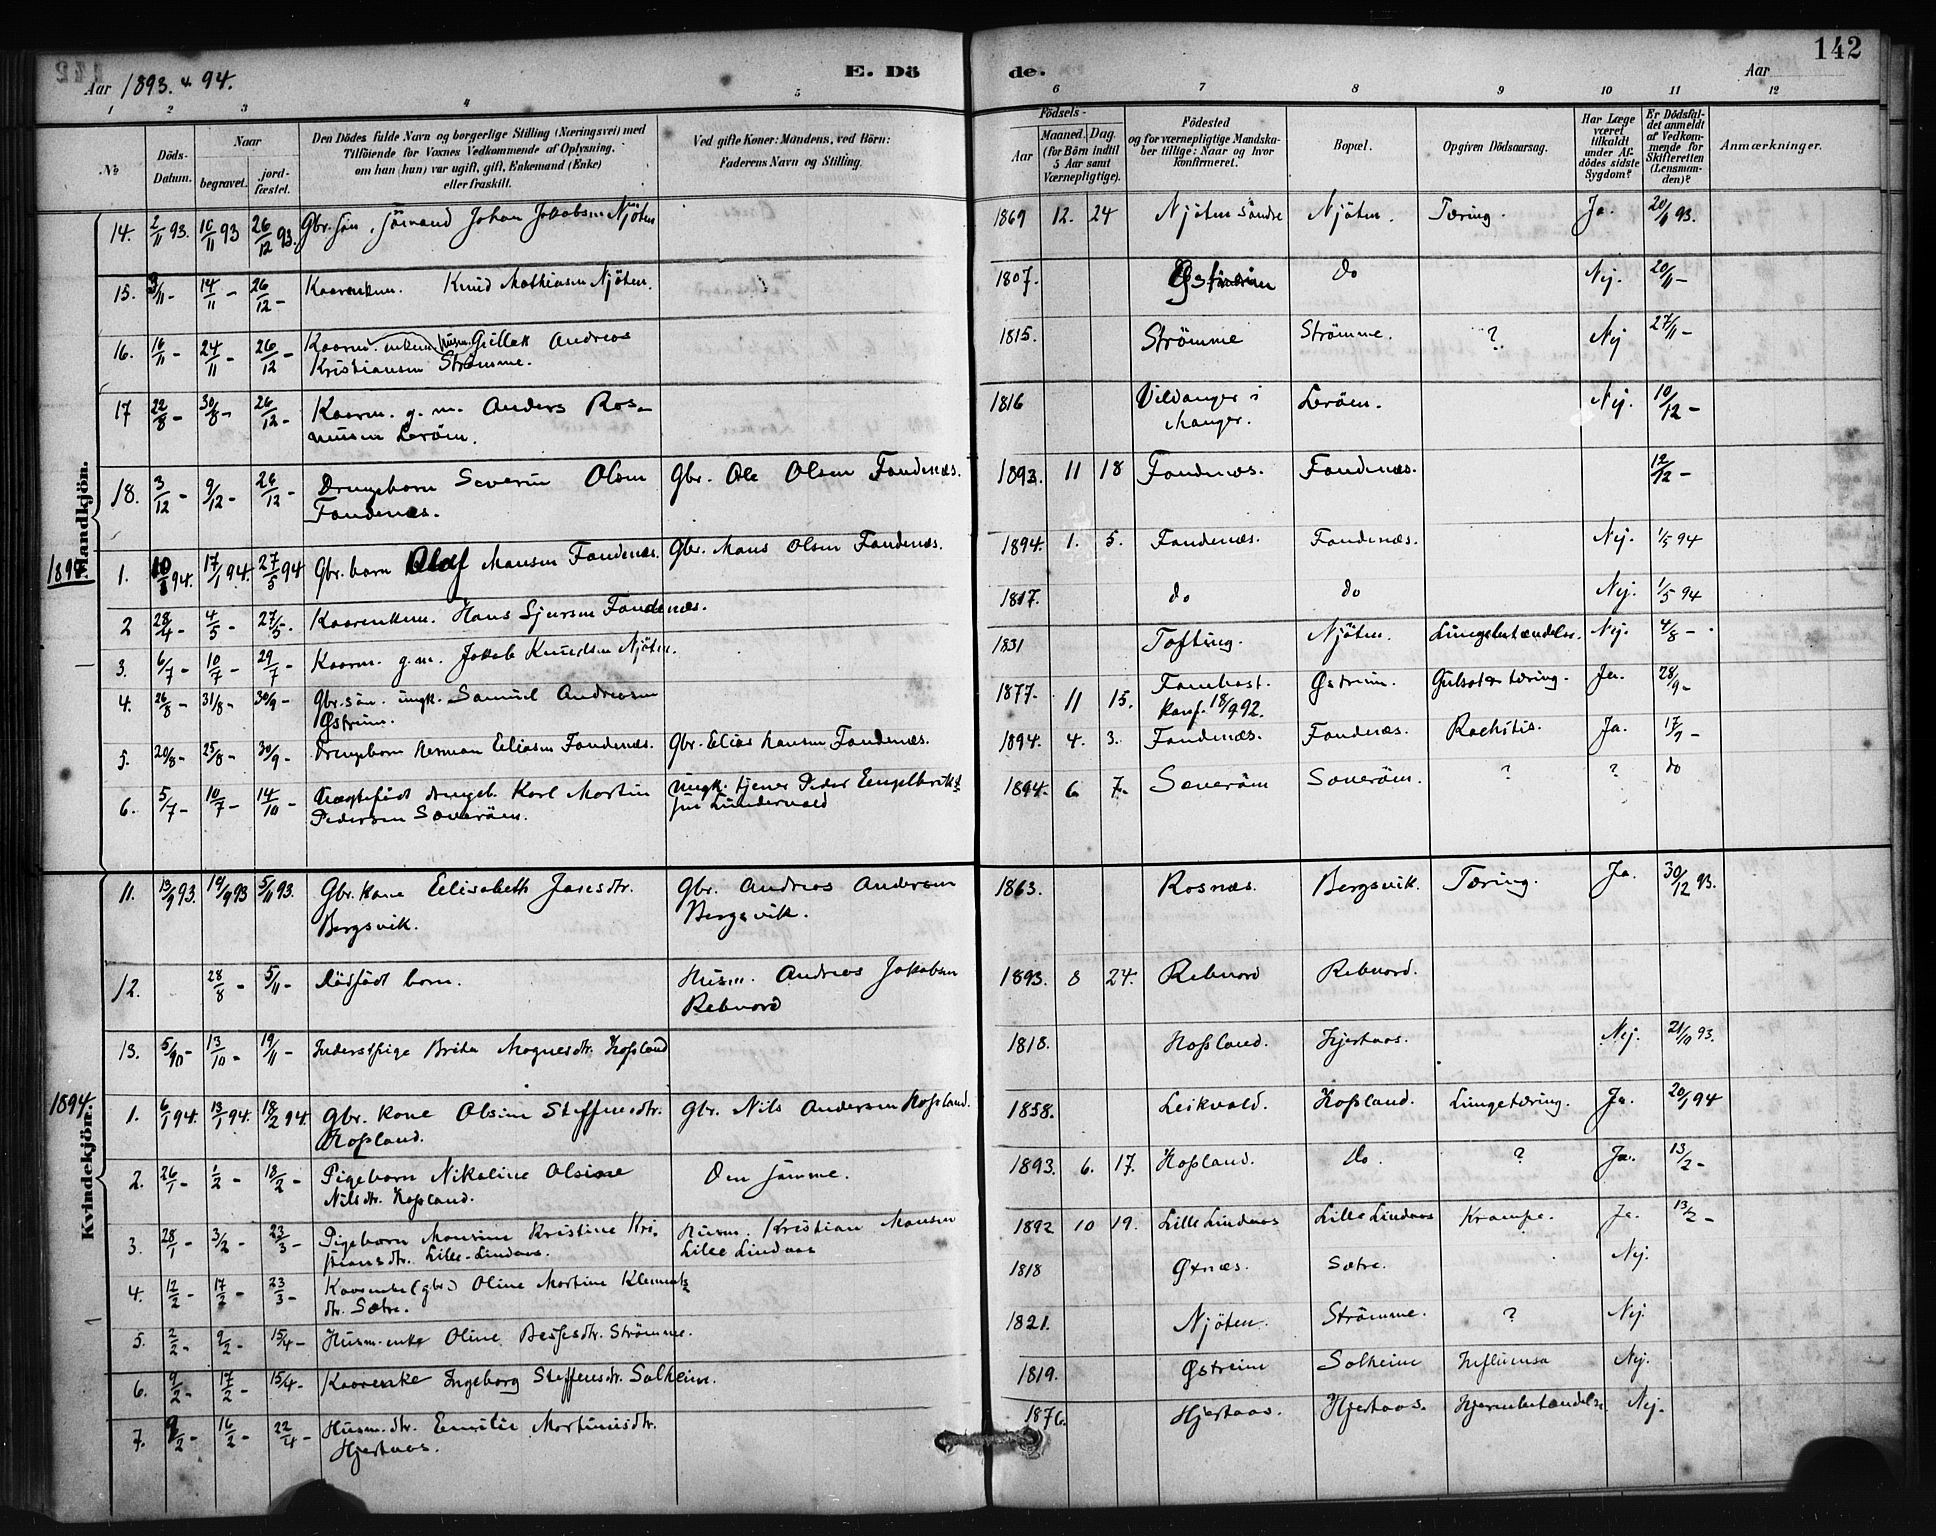 142
Aar 1893 & 94.
E. Dö
de.
Aar
1 2 3 4 5 6 7 8 9 10 11 12
No
Döds-Datum.
Naar
begravet.
jord-fæstet.
Den Dödes fulde Navn og borgerlige Stilling (Næringsvei) med
Tilföiende for Voxnes Vedkommende af Oplysning,
om han (hun) var ugift, gift, Enkemand (Enke)
eller fraskilt.
Ved gifte Koner: Mandens, ved Börn:
Faderens Navn og Stilling.
Födsels-
Aar
Maaned. Dag.
(for Börn indtil
5 Aar samt
Værnepligtige).
Födested
og for værnepligtige Mandska-
ber tillige: Naar og hvor
konfirmeret.
Bopæl.
Opgiven Dödsaarsag.
Har Læge
været
tilkaldt
under Af-
dödes sidste
Sygdom?
Er Dödsfal-
det anmeldt
af Vedkom-
mende for
Skifteretten
(Lensman-
den)?
Anmærkninger.
Mandkjön.
14. 2/11 93. 10/11 93 26/12 93. Gbr. sön, Johan Jakobsen Njöten 1869 12. 24 Njöten Söndre Njöten. Tæring. Ja. 20/11 93.
15. 3/11 - 14/11 - 26/12 - Kaarenkem. Knud Mathiasen Njöten. 1807. Østreim do Nej. 20/11 -
16. 16/11 - 24/11 - 26/12 - Kaarm. enkem. Gullak Andreas
Kristiansen Strömme. 1815. Strömme Strömme. ? Nej 27/11 -
17 22/8 - 30/8 - 26/12 - Kaarm. g. m. Anders Ras-
musen Leröen. 1816 Vildanger i
Manger. Leröen. Nej. 10/12 -
18. 3/12 - 9/12 - 26/12 - Drengebarn Severin Olsen
Fondenæs. Gbr. Ole Olsen Fondenæs. 1893. 11 18 Fondenæs. Fondenæs. 12/12 -
1894
1. 10/1 94. 17/1 94. 27/5 94 Gbr. barn Olaf Mansen Fondenæs. Gbr. Mons Olsen Fondenæs. 1894. 1. 5. Fondenæs. Fondenæs. Nej. 1/5 94
2 28/4 - 4/5 - 27/5. Kaarenkem. Hans Sjursen Fondenæs. 1817. do do Nej. 1/5 94
3. 6/7 - 10/7 - 29/7 - Kaarm. g. m. Jakob Knudsen Njöten. 1831 Tofting. Njöten. Lungebetændelse. Nej. 4/8 -
4. 26/8 - 31/8 - 30/9 - Gbr. sön. ungk. Samuel Andreasen
Østreim. 1877. 11 15. Fonebost.
Konf. 18/9 92. Østreim. Gulsot & tæring. Ja. 28/9 -
5. 20/8 - 25/8 - 30/9 - Drengebarn Herman Eliasen Fondenæs. Gbr. Elias Hansen Fondenæs. 1894. 4. 3. Fondenæs. Fondenæs. Rachitis. Ja. 17/9 -
6. 5/7 - 10/7 - 14/10 - Uægtefödt drengeb. Karl Martin
Pedersen Saveröen. Ungk. tjener Peder Engelbrikt-
sen Lundervold 1894. 6 7. Saveröen Saveröen. ? ? do
Kvindekjön.
11. 13/9 93. 19/9 93 5/11 93. Gbr. kone Elisabeth Jansdtr.
Bergsvik. Gbr. Andreas Andersen
Bergsvik. 1863. Rosnæs. Bergsvik. Tæring. Ja. 30/12 93.
12. 28/8 - 5/11 - Dödfödt barn. Husm. Andreas Jakobsen
Rebnord 1893. 8 24. Rebnord Rebnord.
13. 5/10 - 13/10 - 19/11 - Inderstpige Brita Mognesdtr. Hopland 1818. Hopland. Hjertaas. Nej. 21/10 93.
1894
1. 6/1 94. 13/1 94. 18/2 94. Gbr. kone Olsine Steffensdtr.
Hopland. Gbr. Nils Andersen Hopland. 1858. Leikvold. Hopland. Lungetæring. Ja. 20/1 94
2. 26/1 - 1/2 - 18/2 - Pigebarn Nikoline Olsine
Nilsdtr. Hopland. Den samme. 1893. 6. 17. Hopland. do. ? Ja. 13/2 -
3. 28/1 - 3/2 - 23/3 - Pigebarn Monsine Kristine Kri-
stiansdtr. Lille-Lindaas. Husm. Kristian Monsen
Lille Lindaas 1892 10 19. Lille Lindaas Lille Lindaas Krampe. Ja. 13/2 -
4. 12/2 - 17/2 - 23/3 - Kaarenke (gbr.) Oline Martine Klements
dtr. Sætre. 1818 Øxnæs. Sætre. Nej.
5. 2/2 - 9/2 - 15/4 - Husm. enke Oline Besfesdtr. Strömme. 1821. Njöten. Strömme. ? Nej.
6. 9/2 - 17/2 - 15/4 - Kaarenke Ingeborg Steffensdtr. Solheim. 1819. Østreim Solheim Influensa Nej.
7. 9/2 - 16/2 - 22/4 - Husm. dtr. Emilie Martinusdtr.
Hjertaas. 1876. Hjertaas. Hjertaas. Hjernebetændelse. Nej.